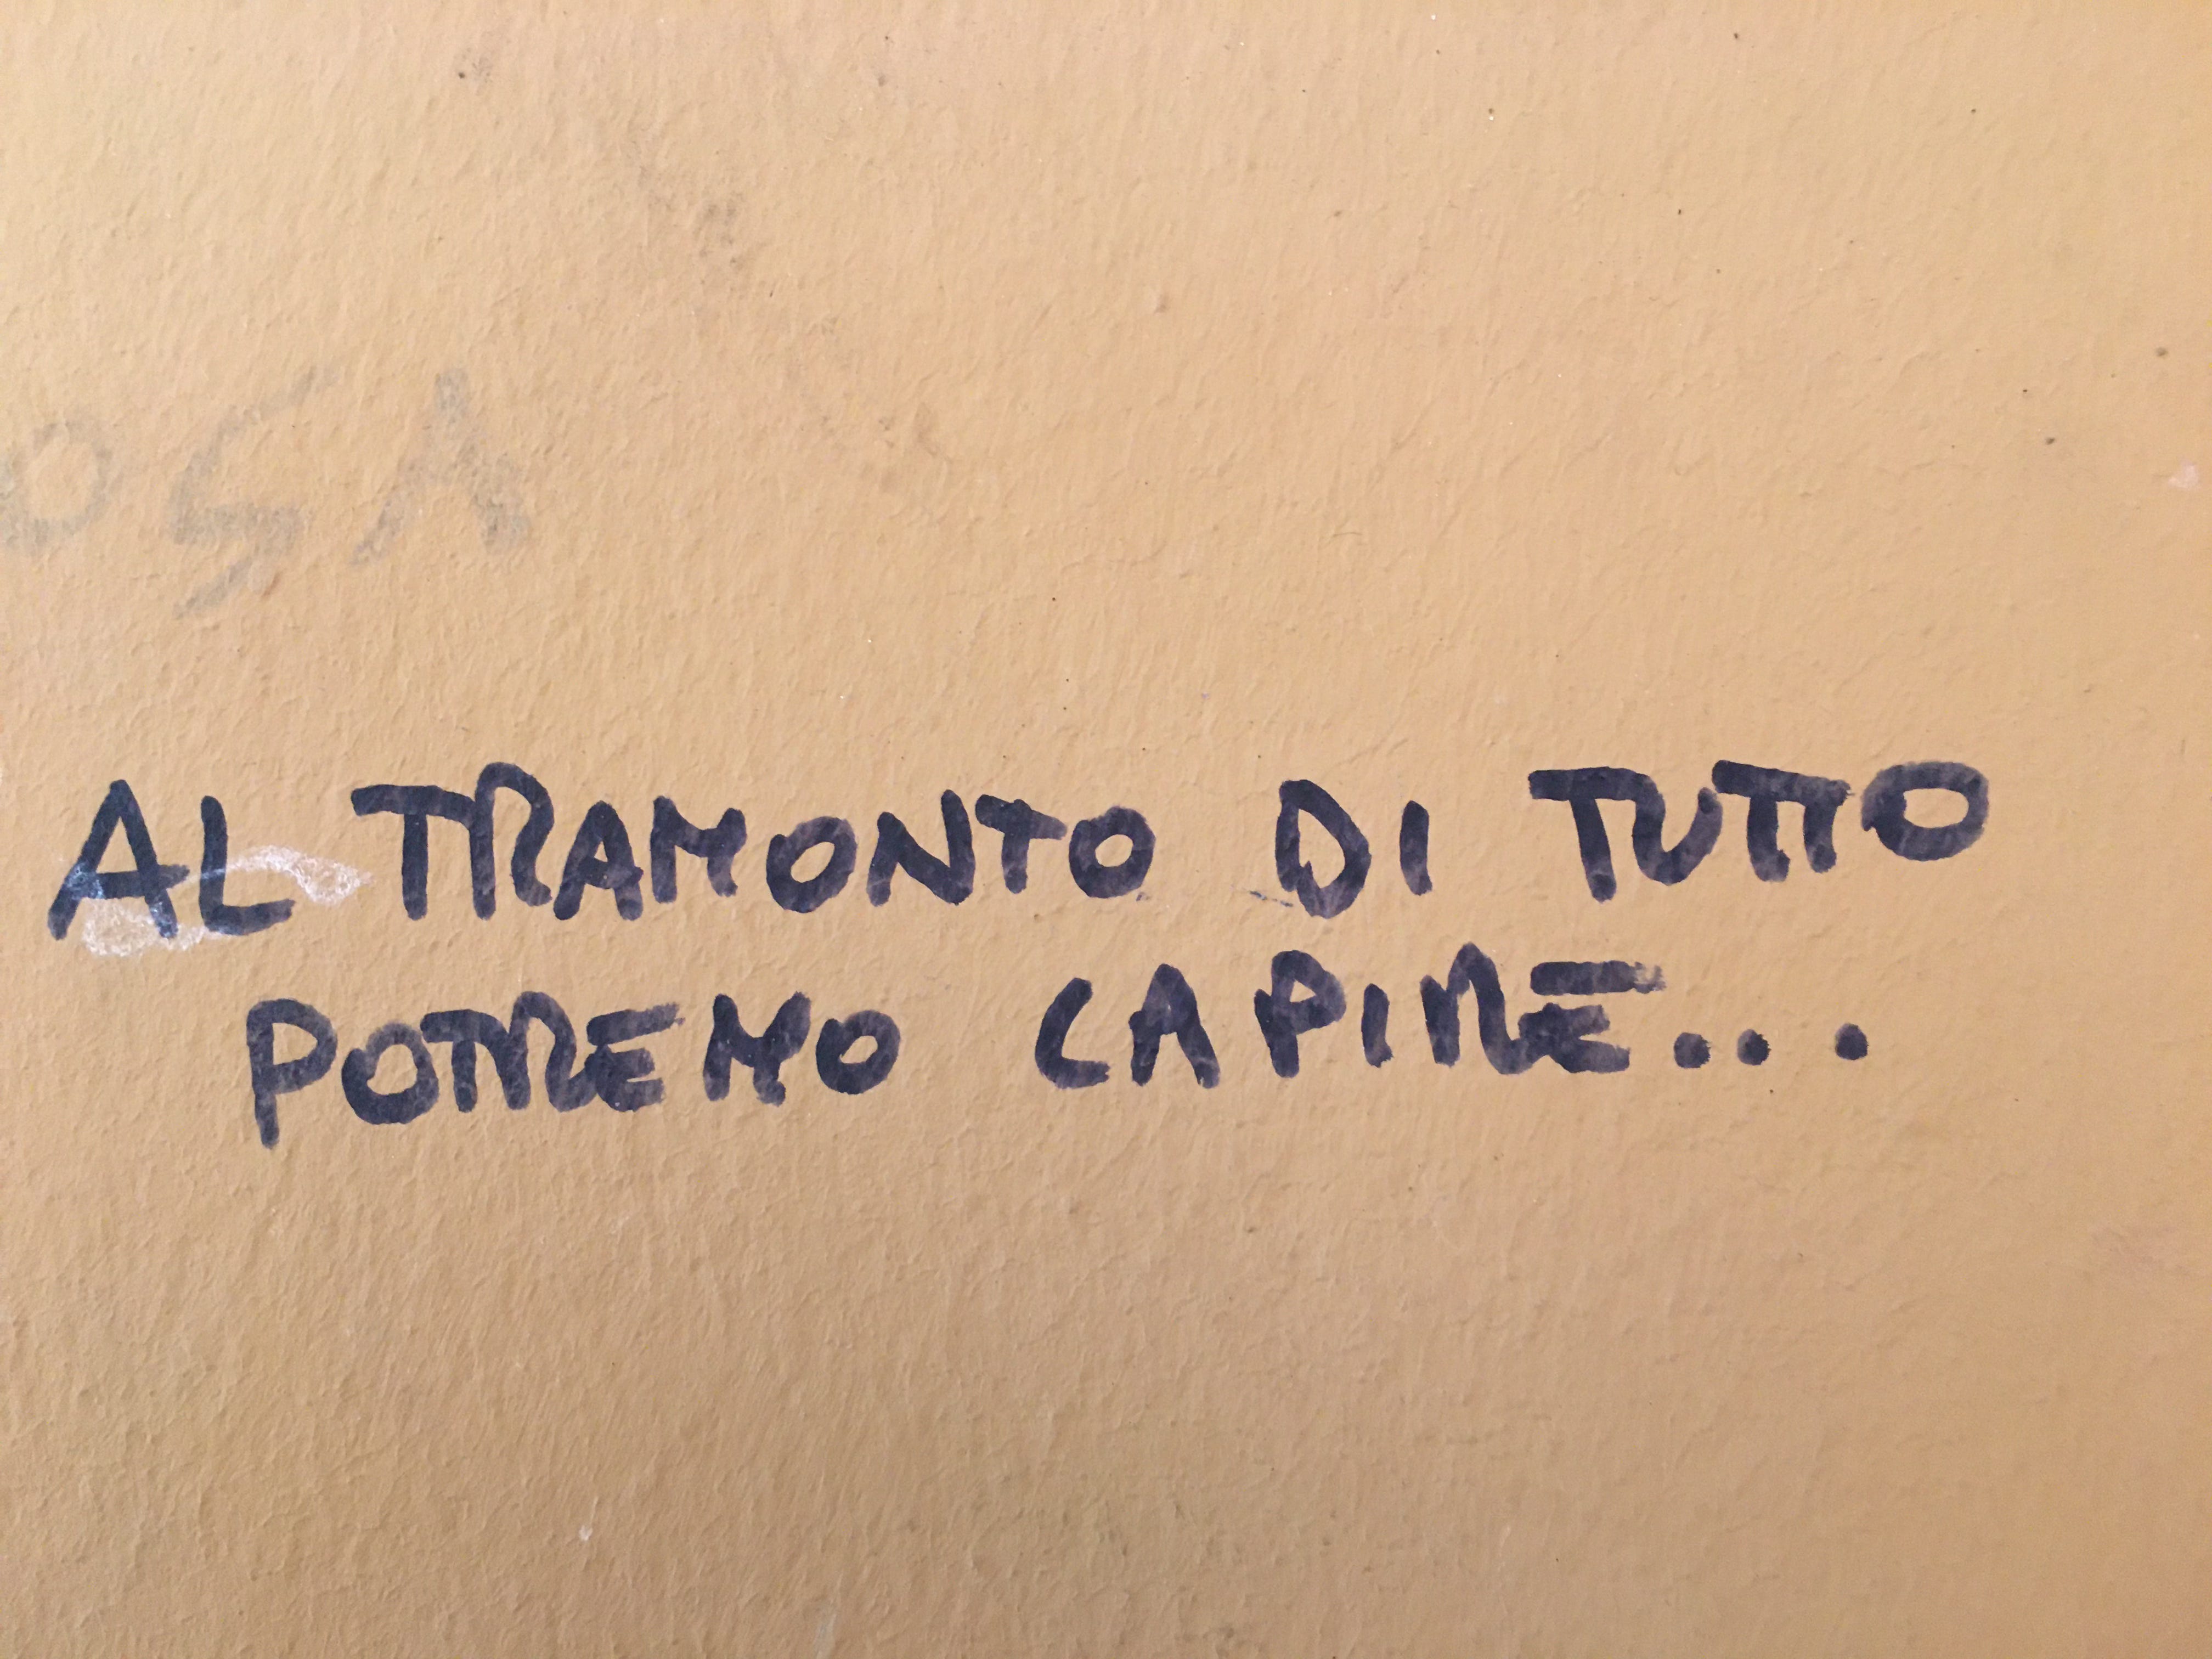 AL TRAMONTO DI TUTTO
POTREMO CAPIRE...